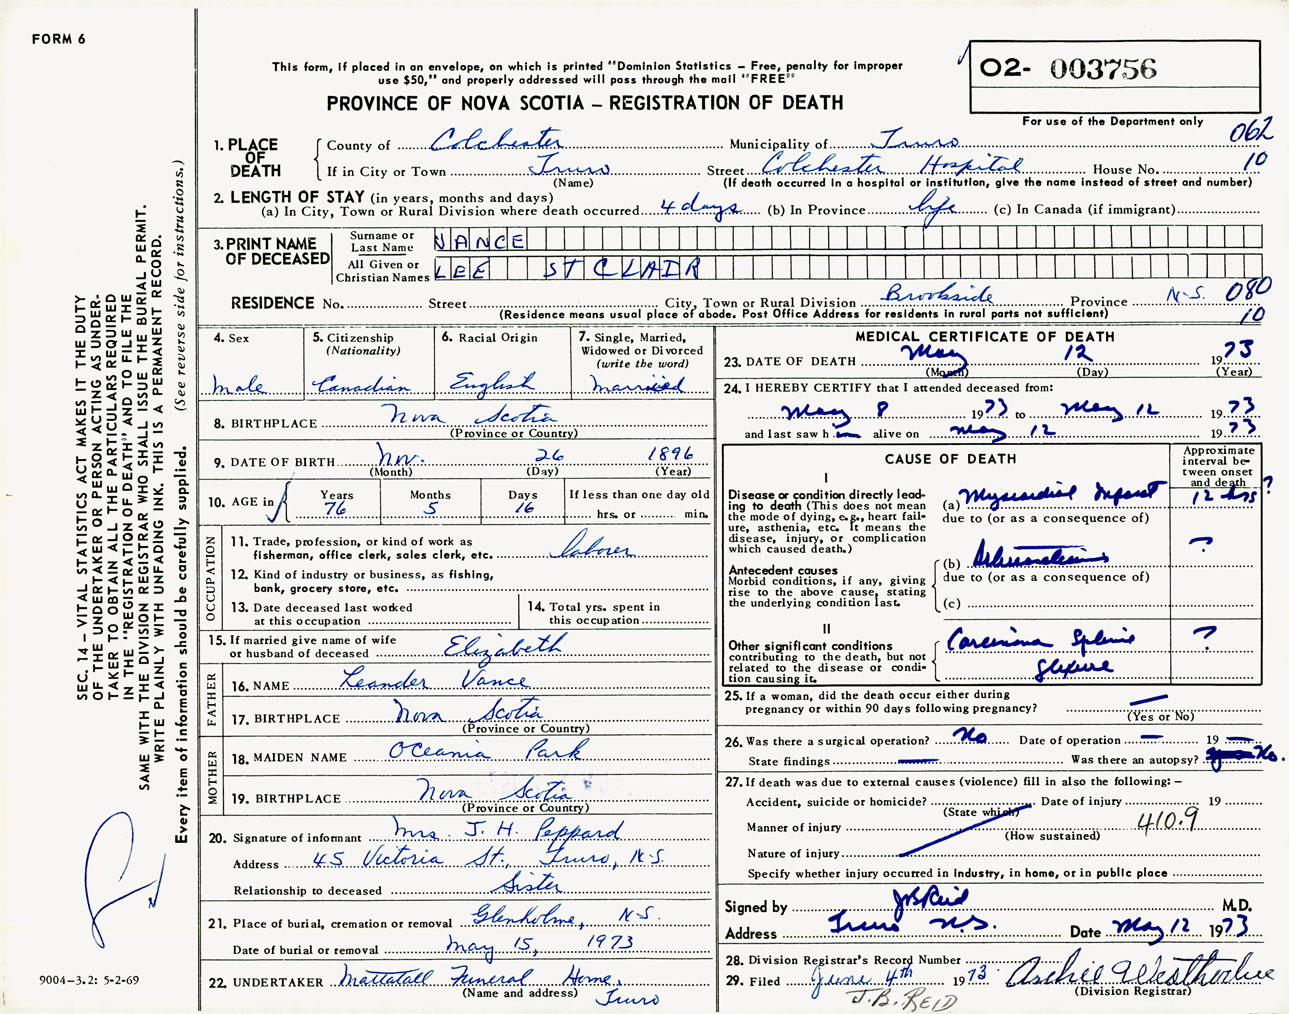 FORM 6
This form, if placed in an envelope, on which is printed "Dominion Statistics – Free, penalty for improper
use $50," and properly addressed will pass through the mail "FREE"
PROVINCE OF NOVA SCOTIA – REGISTRATION OF DEATH
02- 003756
For use of the Department only
062
10
1. PLACE OF DEATH
County of Colchester Municipality of Truro
If in City or Town Truro Street Colchester Hospital House No.
(Name) (If death occurred in a hospital or institution, give the name instead of street and number)
2. LENGTH OF STAY (in years, months and days)
(a) In City, Town or Rural Division where death occurred 4 days (b) In Province life (c) In Canada (if immigrant)
3. PRINT NAME OF DECEASED
Surname or Last Name VANCE
All Given or Christian Names LEE ST CLAIR
RESIDENCE No. Street City, Town or Rural Division Brookside Province N.S. 080
(Residence means usual place of abode. Post Office Address for residents in rural parts not sufficient) 10
4. Sex
male
5. Citizenship
(Nationality)
Canadian
6. Racial Origin
English
7. Single, Married,
Widowed or Divorced
(write the word)
married
8. BIRTHPLACE Nova Scotia
(Province or Country)
9. DATE OF BIRTH Nov. 26 1896
(Month) (Day) (Year)
10. AGE in
Years Months Days If less than one day old
76 5 16 hrs. or min.
OCCUPATION
11. Trade, profession, or kind of work as
fisherman, office clerk, sales clerk, etc. laborer
12. Kind of industry or business, as fishing,
bank, grocery store, etc.
13. Date deceased last worked
at this occupation
14. Total yrs. spent in
this occupation
15. If married give name of wife
or husband of deceased Elizabeth
FATHER
16. NAME Leander Vance
17. BIRTHPLACE Nova Scotia
(Province or Country)
MOTHER
18. MAIDEN NAME Oceania Park
19. BIRTHPLACE Nova Scotia
(Province or Country)
20. Signature of informant Mrs. J. H. Peppard
Address 45 Victoria St., Truro, N.S.
Relationship to deceased Sister
21. Place of burial, cremation or removal Glenholme, N.S.
Date of burial or removal May 15, 1973
22. UNDERTAKER Mattatall Funeral Home,
(Name and address) Truro
MEDICAL CERTIFICATE OF DEATH
23. DATE OF DEATH May 12 1973
(Month) (Day) (Year)
24. I HEREBY CERTIFY that I attended deceased from:
May 8 1973 to May 12 1973
and last saw h im alive on May 12 1973
CAUSE OF DEATH
Approximate
interval be-
tween onset
and death
I
Disease or condition directly lead-
ing to death (This does not mean
the mode of dying, e.g., heart fail-
ure, asthenia, etc. It means the
disease, injury, or complication
which caused death.)
(a) Myocardial Infarct 12 hrs?
due to (or as a consequence of)
Antecedent causes
Morbid conditions, if any, giving
rise to the above cause, stating
the underlying condition last.
(b) ?
due to (or as a consequence of)
(c)
II
Other significant conditions
contributing to the death, but not
related to the disease or condi-
tion causing it.
Carcinoma Splenic ?
flexure
25. If a woman, did the death occur either during
pregnancy or within 90 days following pregnancy? —
(Yes or No)
26. Was there a surgical operation? No Date of operation — 19 —
State findings — Was there an autopsy? No.
27. If death was due to external causes (violence) fill in also the following:–
Accident, suicide or homicide? Date of injury 19
(State which)
Manner of injury 410.9
(How sustained)
Nature of injury
Specify whether injury occurred in industry, in home, or in public place
Signed by JB Reid M.D.
Address Truro N.S. Date May 12 1973
28. Division Registrar's Record Number
29. Filed June 4th 1973 Archie Weatherbee
(Division Registrar)
J.B. REID
SEC. 14 – VITAL STATISTICS ACT MAKES IT THE DUTY
OF THE UNDERTAKER OR PERSON ACTING AS UNDER-
TAKER TO OBTAIN ALL THE PARTICULARS REQUIRED
IN THE "REGISTRATION OF DEATH" AND TO FILE THE
SAME WITH THE DIVISION REGISTRAR WHO SHALL ISSUE THE BURIAL PERMIT.
WRITE PLAINLY WITH UNFADING INK. THIS IS A PERMANENT RECORD.
Every item of information should be carefully supplied. (See reverse side for instructions.)
9004–3.2: 5-2-69